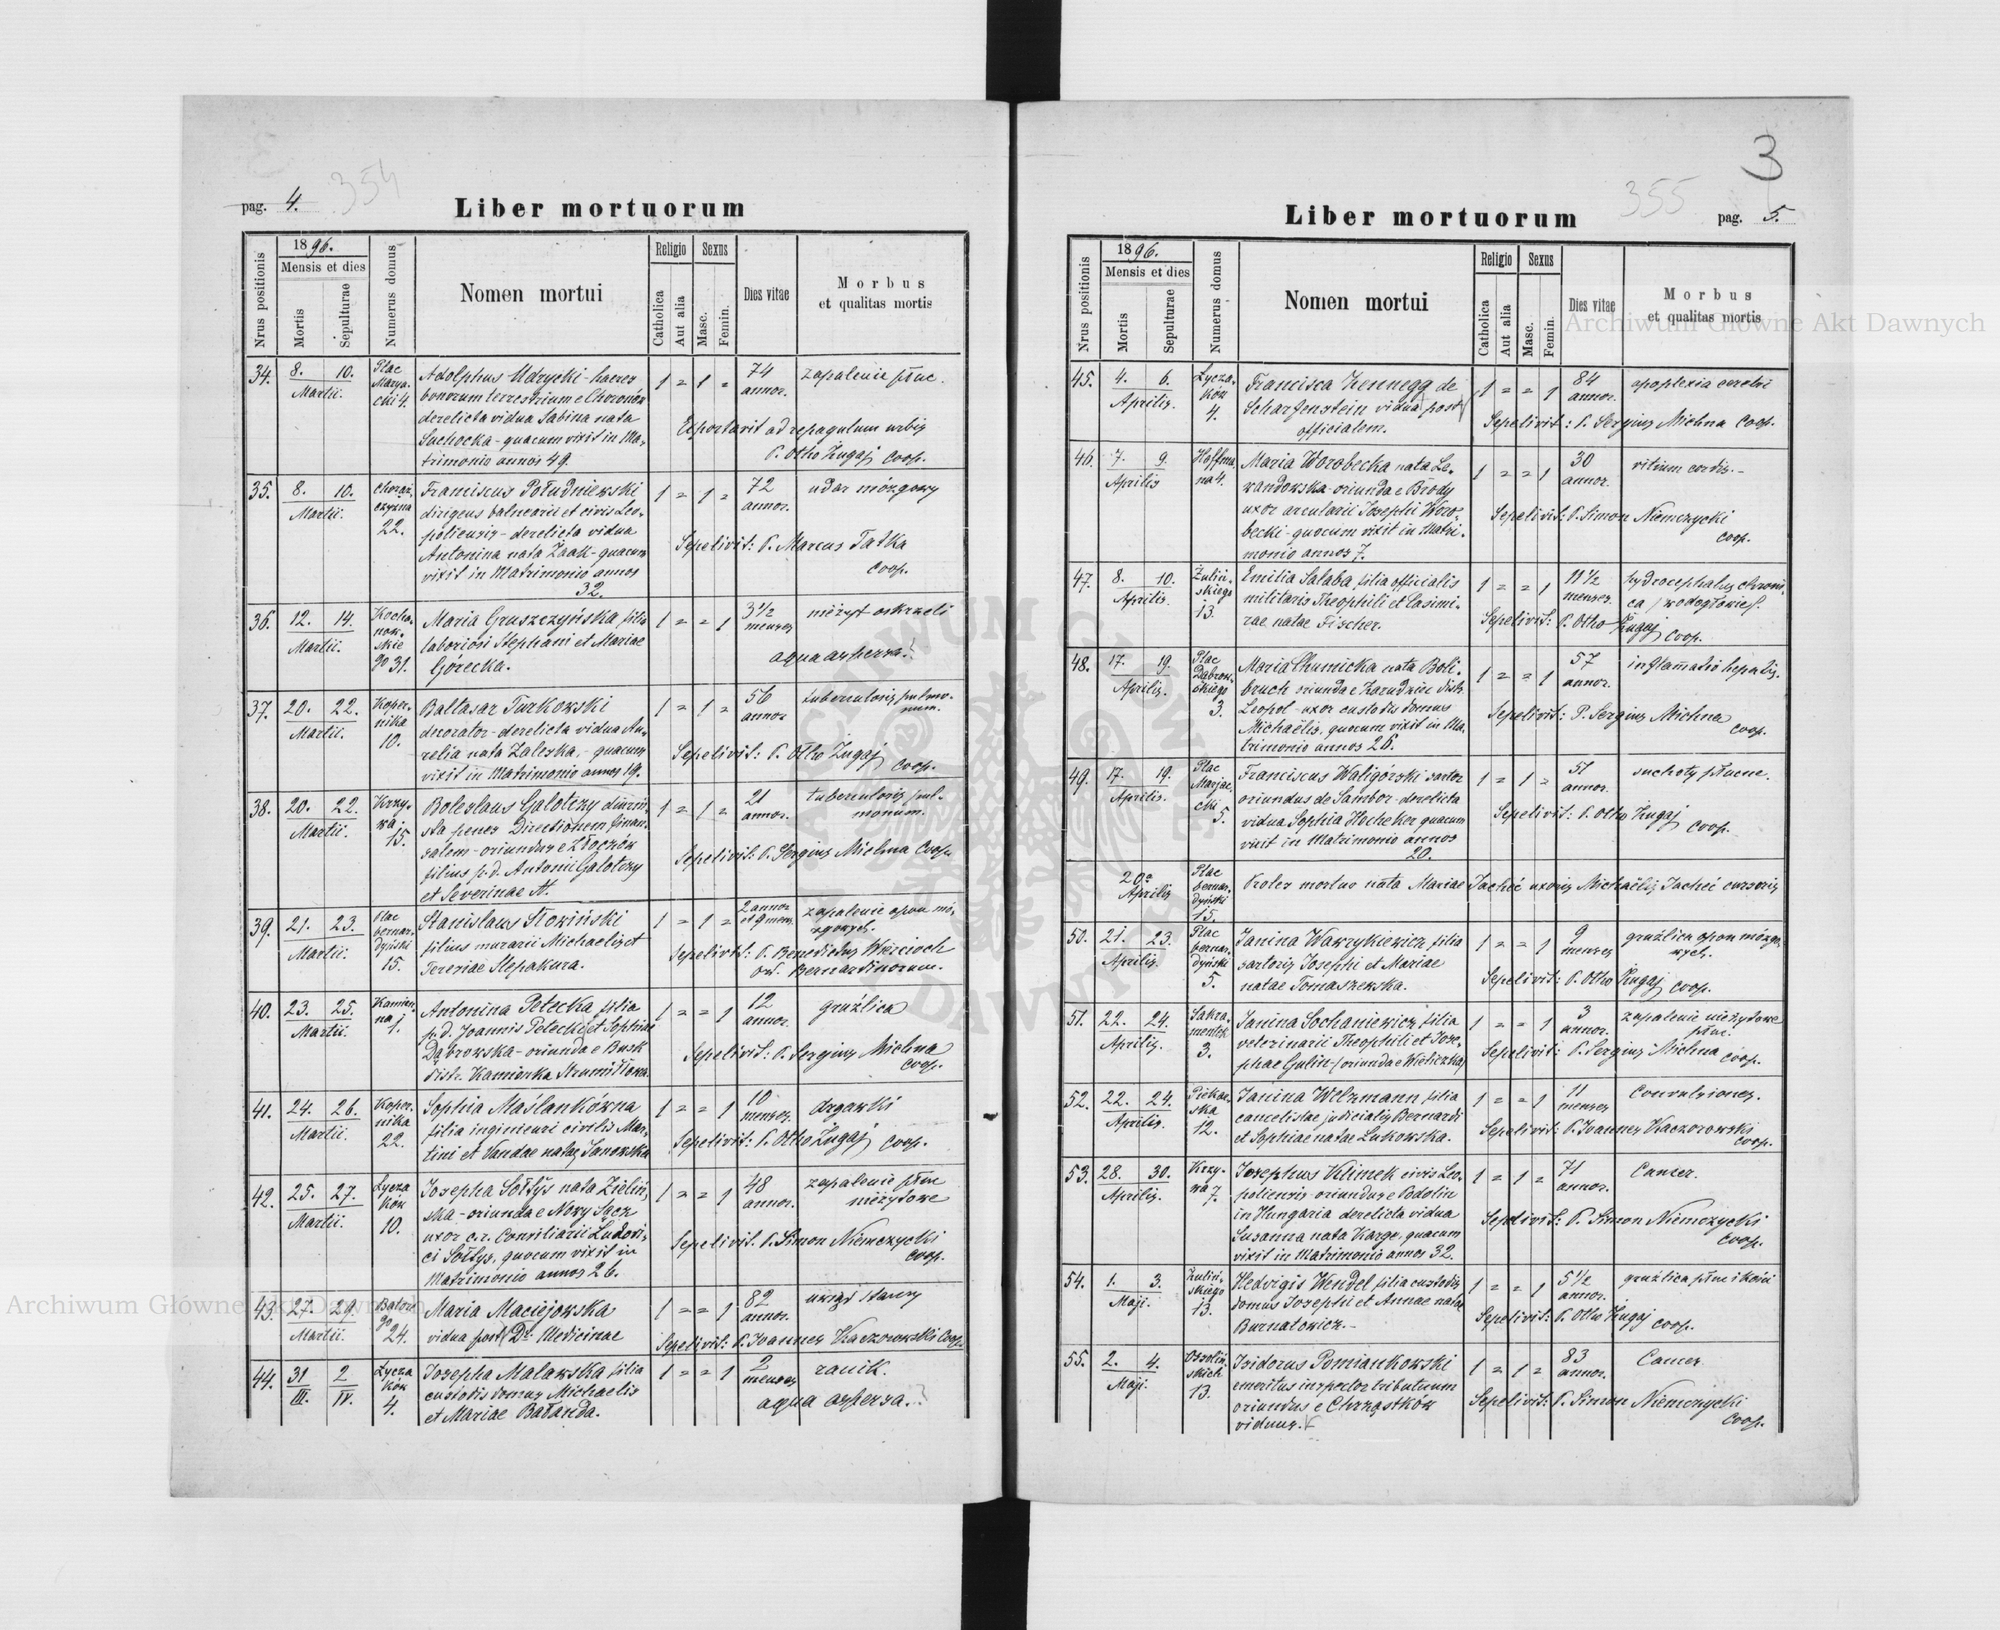 pag. 4. 354
Liber mortuorum
Nrus positionis
1896.
Mensis et dies
Mortis
Sepulturae
Numerus domus
Nomen mortui
Religio
Catholica
Aut alia
Sexus
Masc.
Femin.
Dies vitae
Morbus
et qualitas mortis
34. 8. 10. Martii. Plac Marya- cki 4.
Adolphus Udrycki - haeres
bonorum terrestrium e Choronów
derelicta vidua Sabina nata
Suchocka - quacum vixit in Ma-
trimonio annos 49.
1 = 1 = 74 annor. zapalenie płuc.
Exportavit ad repagulum urbis
P. Otho Żugaj coop.
35. 8. 10. Martii. Chorąż- czyzna 22.
Franciscus Południewski
dirigens balnearii et civis Leo-
poliensis - derelicta vidua
Antonina nata Żaak - quacum
vixit in Matrimonio annos
32.
1 = 1 = 72 annor. udar mózgowy
Sepelivit: P. Marcus Tatka
coop.
36. 12. 14. Martii. Kocha- now- skie go 31.
Maria Gruszczyńska filia
laboriosi Stephani et Mariae
Górecka.
1 = = 1 3 1/2 menses nieżyt oskrzeli
aqua aspersa.
37. 20. 22. Martii. Koper- nika 10.
Baltasar Turkowski
decorator - derelicta vidua Au-
relia nata Zaleska - quacum
vixit in Matrimonio annos 19.
1 = 1 = 56 annor tuberculosis pulmo- num.
Sepelivit: P. Otho Żugaj coop.
38. 20. 22. Martii. Krzy- wa 15.
Boleslaus Galotzy diurni-
sta penes Directionem finan-
salem - oriundus e Złoczów
filius p.d. Antonii Galotzy
et Severinae N.
1 = 1 = 21 annor. tuberculosis pul- monum.
Sepelivit: P. Sergius Michna Coop.
39. 21. 23. Martii. Plac bernar- dyński 15.
Stanislaus Słowiński
filius murarii Michaelis et
Teresiae Slepakura.
1 = 1 = 2 annor et 9 mens. zapalenie opon mó- zgowych.
Sepelivit: P. Benedictus Wiercioch
Ord. Bernardinorum.
40. 23. 25. Martii. Kamien- na 1.
Antonina Petecka, filia
p.d. Joannis Petecki et Sophiae
Dąbrowska - oriunda e Busk
distr. Kamionka Strumiłłowa.
1 = = 1 12 annor. gruźlica
Sepelivit: P. Sergius Michna
coop.
41. 24. 26. Martii. Koper- nika 22.
Sophia Maślankówna
filia ingenieuri civilis Mar-
tini et Vandae natae Janowska
1 = = 1 10 menses. drgawki
Sepelivit: P. Otho Żugaj coop.
42. 25. 27. Martii. Łycza ków 10.
Josepha Sołtys nata Zieliń-
ska - oriunda e Nowy Sącz
uxor c.r. Consiliarii Ludovi-
ci Sołtys, quocum vixit in
Matrimonio annos 26.
1 = = 1 48 annor. zapalenie płuc nieżytowe
Sepelivit. P. Simon Niemczycki
coop.
43. 27. 29. Martii. Batore go 24.
Maria Maciejowska
vidua post Dr Medicinae
1 = = 1 82 annor. uwiąd starczy
Sepelivit: P. Joannes Kaczorowski Coop.
44. 31 III. 2 IV. Łycza ków 4.
Josepha Malawska filia
custodis domus Michaelis
et Mariae Bałanda.
1 = = 1 2 menses zanik.
aqua aspersa.
3
355 pag. 5.
Liber mortuorum
Nrus positionis
1896.
Mensis et dies
Mortis
Sepulturae
Numerus domus
Nomen mortui
Religio
Catholica
Aut alia
Sexus
Masc.
Femin.
Dies vitae
Morbus
et qualitas mortis
45. 4. 6. Aprilis. Łycza- ków 4.
Francisca Hennegg de
Scharfenstein vidua post
officialem.
1 = = 1 84 annor. apoplexia cerebri
Sepelivit: P. Sergius Michna Coop.
46. 7. 9. Aprilis Hoffma- na 4.
Maria Worobecka nata Le-
wandowska oriunda e Brody
uxor arcularii Josephi Woro-
becki - quocum vixit in Matri-
monio annos 7.
1 = = 1 30 annor. vitium cordis. -
Sepelivit: P. Simon Niemczycki
coop.
47. 8. 10. Aprilis. Żuliń- skiego 13.
Emilia Salaba filia officialis
militaris Theophili et Casimi-
rae natae Fischer.
1 = = 1 11 1/2 menses. hydrocephalus chroni- ca / wodogłowie/.
Sepelivit: P. Otho Żugaj coop.
48. 17. 19. Aprilis. Plac Dąbrow- skiego 3.
Maria Chumicka nata Boli-
bruch oriunda e Zarudzice distr.
Leopol - uxor custodis domus
Michaëlis, quocum vixit in Ma-
trimonio annos 26.
1 = = 1 57 annor. inflamatio hepatis.
Sepelivit: P. Sergius Michna
coop.
49. 17. 19. Aprilis. Plac Maryac- cki 5.
Franciscus Waligórski sartor
oriundus de Sambor - derelicta
vidua Sophia Hocheker quacum
vixit in Matrimonio annos
20.
1 = 1 = 51 annor. suchoty płucne.
Sepelivit: P. Otho Żugaj
coop.
20a Aprilis Plac bernar- dyński 15.
Proles mortuo nata Mariae Jacheć uxoris Michaëlis Jacheć cursoris
50. 21. 23. Aprilis. Plac bernar- dyński 5.
Janina Wawrykiewicz filia
sartoris Josephi et Mariae
natae Tomaszewska.
1 = = 1 9 menses gruźlica opon mózgo- wych.
Sepelivit: P. Otho Żugaj coop.
51. 22. 24. Aprilis. Sakra- mentek 3.
Janina Sochaniewicz filia
veterinarii Theophili et Jose-
phae Gulin / oriunda e Wieliczka/
1 = = 1 3 annor. zapalenie nieżytowe płuc.
Sepelivit: P. Sergius Michna coop.
52. 22. 24. Aprilis. Piekar- ska 12.
Janina Welzmann filia
cancelistae judicialis Bernardi
et Sophiae natae Lukowska.
1 = = 1 11 menses Convulsiones.
Sepelivit: P. Joannes Kaczorowski
coop.
53. 28. 30. Aprilis. Krzy- wa 7.
Josephus Klimek civis Leo-
poliensis - oriundus e Podolin
in Hungaria derelicta vidua
Susanna nata Karge, quacum
vixit in Matrimonio annos 32.
1 = 1 = 71 annor. Cancer.
Sepelivit: P. Simon Niemczycki
coop.
54. 1. 3. Maji. Żuliń- skiego 13.
Hedvigis Wendel, filia custodis
domus Josephi et Annae natae
Burnatowicz. -
1 = = 1 5 1/2 annor. gruźlica płuc i kości
Sepelivit: P. Otho Żugaj coop.
55. 2. 4. Maji. Ossoliń- skich 13.
Isidorus Pomiankowski
emeritus inspector tributuum
oriundus e Chrząstków
viduus.
1 = 1 = 83 annor. Cancer
Sepelivit: P. Simon Niemczycki
coop.
Archiwum Główne Akt Dawnych
Archiwum Główne Akt Dawnych
ARCHIWUM GŁÓWNE AKT DAWNYCH